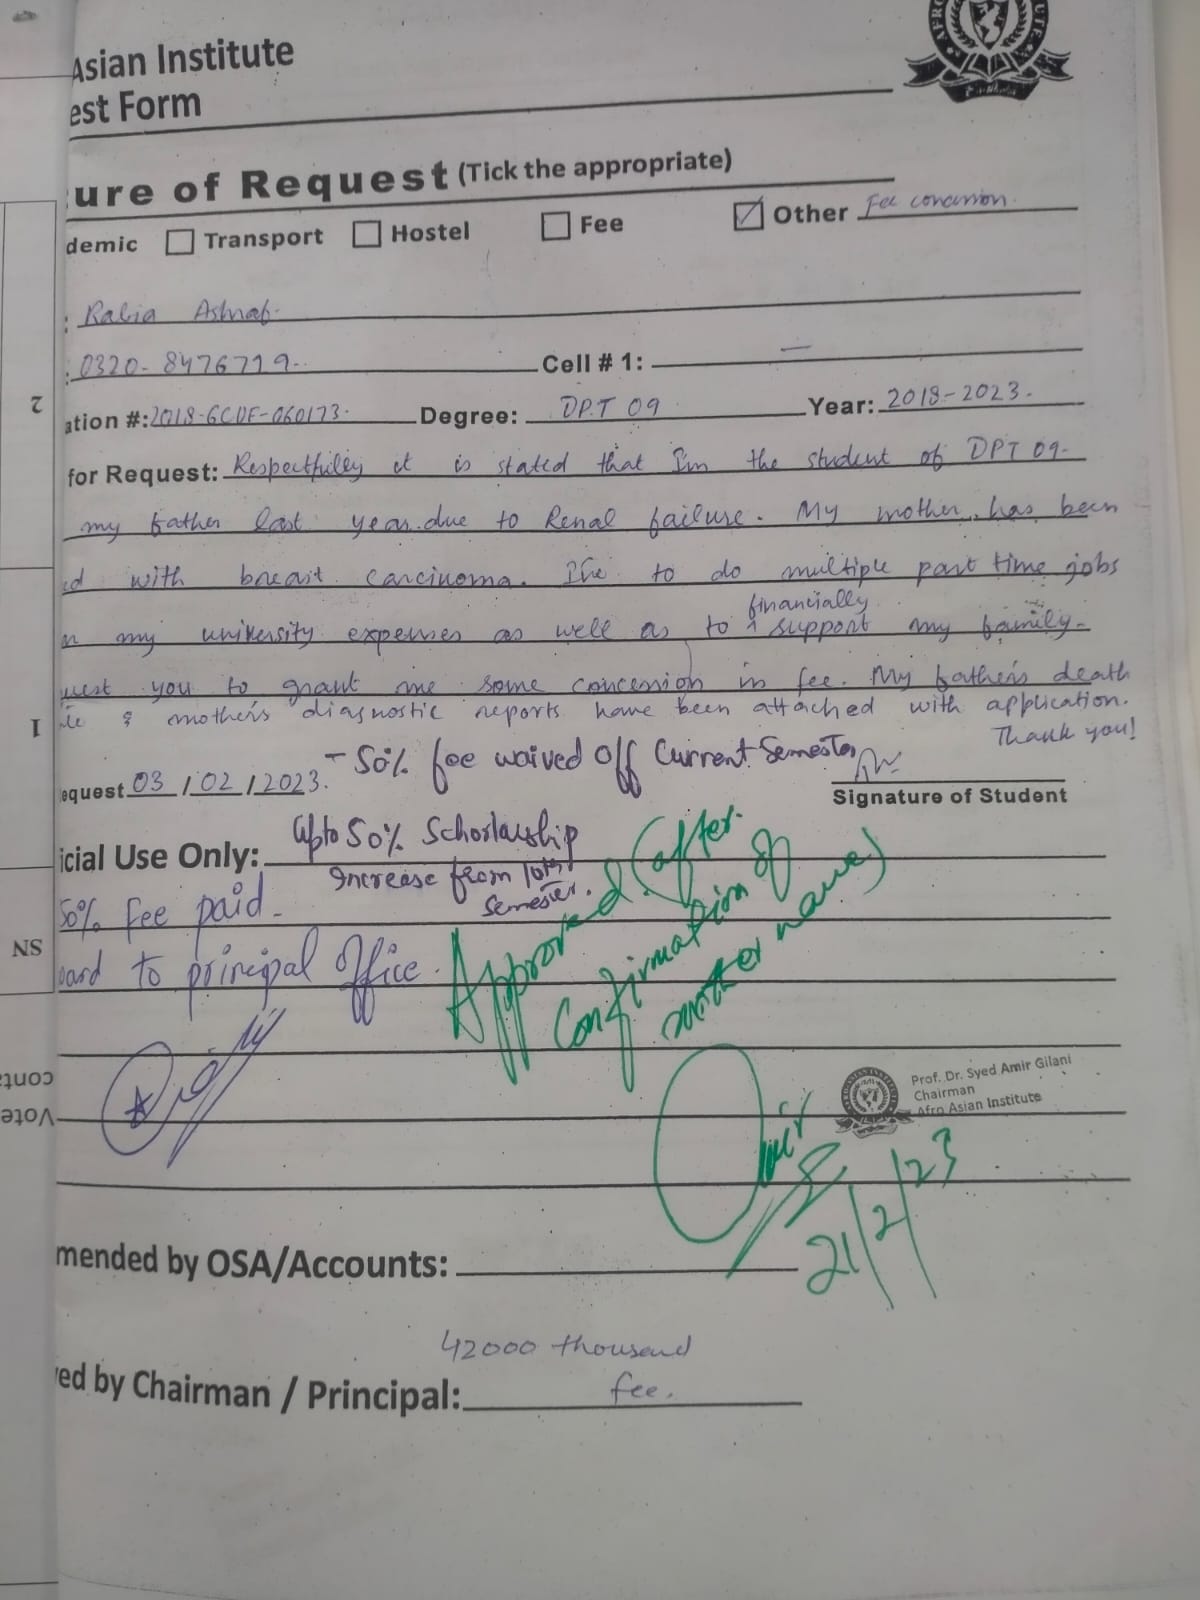 Asian Institute
est Form
ure of Request (Tick the appropriate)
demic Transport Hostel Fee Other Fee concession.
: Rabia Ashraf.
: 0320-8476719. Cell # 1: —
ation #: 2018-GCUF-060173. Degree: DPT 09 Year: 2018-2023.
for Request: Respectfully it is stated that I'm the student of DPT 09.
my father last year due to Renal failure. My mother has been
ed with breast carcinoma. I've to do multiple part time jobs
my university expenses as well as to financially support my family.
uest you to grant me some concession in fee. My father's death
& mother's diagnostic reports have been attached with application.
Thank you!
- 50% fee waived off Current Semester
equest 03/02/2023.
Signature of Student
icial Use Only: upto 50% Schorlarship
Increase from 10th Semester.
50% fee paid.
ward to principal office.
Approved. (after
Confirmation of
mother name)
Prof. Dr. Syed Amir Gilani
Chairman
Afro Asian Institute
Amir
21/2/23
mended by OSA/Accounts:
42000 thousand
ved by Chairman / Principal: fee.
2
1
SN
cont
Vote